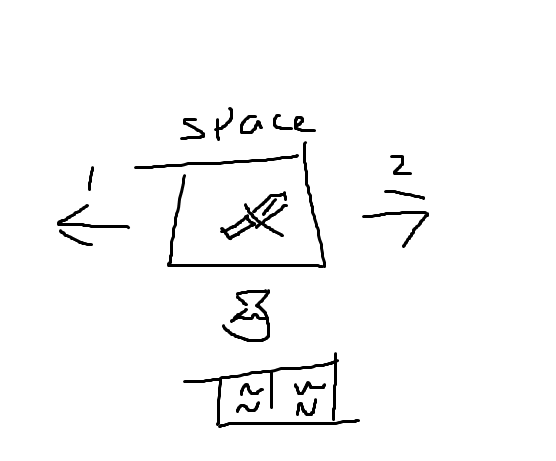 space
1
2